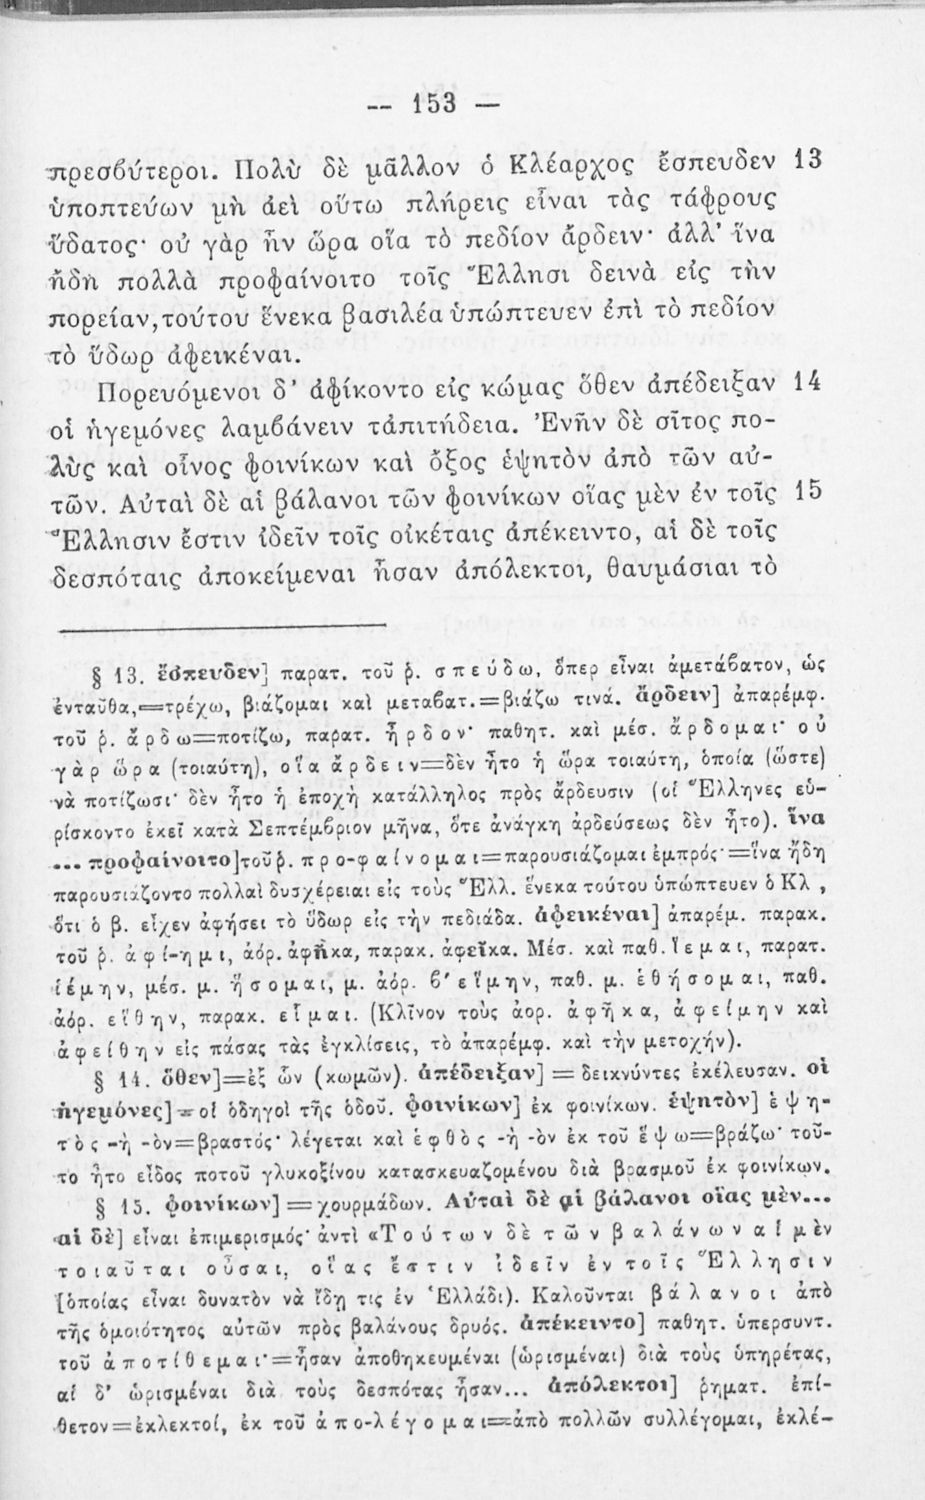 -- 153 —
πρεσβύτεροι. Πολὺ δὲ μᾶλλον ὁ Κλέαρχος ἔσπευδεν 13
ὑποπτεύων μὴ ἀεὶ οὕτω πλήρεις εἶναι τὰς τάφρους
ὕδατος· οὐ γὰρ ἦν ὥρα οἵα τὸ πεδίον ἄρδειν· ἀλλ’ ἵνα
ἤδη πολλὰ προφαίνοιτο τοῖς Ἕλλησι δεινὰ εἰς τὴν
πορείαν, τούτου ἕνεκα βασιλέα ὑπώπτευεν ἐπὶ τὸ πεδίον
τὸ ὕδωρ ἀφεικέναι.
Πορευόμενοι δ’ ἀφίκοντο εἰς κώμας ὅθεν ἀπέδειξαν 14
οἱ ἡγεμόνες λαμβάνειν τἀπιτήδεια. Ἐνῆν δὲ σῖτος πο-
λὺς καὶ οἶνος φοινίκων καὶ ὄξος ἑψητὸν ἀπὸ τῶν αὐ-
τῶν. Αὐταὶ δὲ αἱ βάλανοι τῶν φοινίκων οἵας μὲν ἐν τοῖς 15
Ἕλλησιν ἔστιν ἰδεῖν τοῖς οἰκέταις ἀπέκειντο, αἱ δὲ τοῖς
δεσπόταις ἀποκείμεναι ἦσαν ἀπόλεκτοι, θαυμάσιαι τὸ
§ 13. ἔσπευδεν] παρατ. τοῦ ῥ. σπεύδω, ὅπερ εἶναι ἀμετάβατον, ὡς
ἐνταῦθα,=τρέχω, βιάζομαι καὶ μεταβατ.=βιάζω τινά. ἄρδειν] ἀπαρέμφ.
τοῦ ῥ. ἄρδω=ποτίζω, παρατ. ἦρδον· παθητ. καὶ μέσ. ἄρδομαι· οὐ
γὰρ ὥρα (τοιαύτη), οἵα ἄρδειν=δὲν ἦτο ἡ ὥρα τοιαύτη, ὁποία (ὥστε)
νὰ ποτίζωσι· δὲν ἦτο ἡ ἐποχὴ κατάλληλος πρὸς ἄρδευσιν (οἱ Ἕλληνες εὑ-
ρίσκοντο ἐκεῖ κατὰ Σεπτέμβριον μῆνα, ὅτε ἀνάγκη ἀρδεύσεως δὲν ἦτο). ἵνα
... προφαίνοιτο] τοῦ ῥ. προ-φαίνομαι=παρουσιάζομαι ἐμπρός·=ἵνα ἤδη
παρουσιάζοντο πολλαὶ δυσχέρειαι εἰς τοὺς Ἕλλ. ἕνεκα τούτου ὑπώπτευεν ὁ Κλ ,
ὅτι ὁ β. εἶχεν ἀφήσει τὸ ὕδωρ εἰς τὴν πεδιάδα. ἀφεικέναι] ἀπαρέμ. παρακ.
τοῦ ῥ. ἀφί-ημι, ἀόρ. ἀφῆκα, παρακ. ἀφεῖκα. Μέσ. καὶ παθ. ἵεμαι, παρατ.
ἱέμην, μέσ. μ. ἥσομαι, μ. ἀόρ. β’ εἵμην, παθ. μ. ἑθήσομαι, παθ.
ἀόρ. εἵθην, παρακ. εἷμαι. (Κλῖνον τοὺς ἀορ. ἀφῆκα, ἀφείμην καὶ
ἀφείθην εἰς πάσας τὰς ἐγκλίσεις, τὸ ἀπαρέμφ. καὶ τὴν μετοχήν).
§ 14. ὅθεν]=ἐξ ὧν (κωμῶν). ἀπέδειξαν]=δεικνύντες ἐκέλευσαν. οἱ
ἡγεμόνες]=οἱ ὁδηγοὶ τῆς ὁδοῦ. φοινίκων] ἐκ φοινίκων. ἑψητὸν] ἑψη-
τὸς -ὴ -ὸν=βραστός· λέγεται καὶ ἑφθὸς -ὴ -ὸν ἐκ τοῦ ἕψω=βράζω· τοῦ-
το ἦτο εἶδος ποτοῦ γλυκοξίνου κατασκευαζομένου διὰ βρασμοῦ ἐκ φοινίκων.
§ 15. φοινίκων]=χουρμάδων. Αὐταὶ δὲ αἱ βάλανοι οἵας μὲν...
αἱ δὲ] εἶναι ἐπιμερισμός· ἀντὶ «Τούτων δὲ τῶν βαλάνων αἱ μὲν
τοιαῦται οὖσαι, οἵας ἔστιν ἰδεῖν ἐν τοῖς Ἕλλησιν
[ὁποίας εἶναι δυνατὸν νὰ ἴδῃ τις ἐν Ἑλλάδι). Καλοῦνται βάλανοι ἀπὸ
τῆς ὁμοιότητος αὐτῶν πρὸς βαλάνους δρυός. ἀπέκειντο] παθητ. ὑπερσυντ.
τοῦ ἀποτίθεμαι·=ἦσαν ἀποθηκευμέναι (ὡρισμέναι) διὰ τοὺς ὑπηρέτας,
αἱ δ’ ὡρισμέναι διὰ τοὺς δεσπότας ἦσαν... ἀπόλεκτοι] ῥηματ. ἐπί-
θετον=ἐκλεκτοί, ἐκ τοῦ ἀπο-λέγομαι=ἀπὸ πολλῶν συλλέγομαι, ἐκλέ-